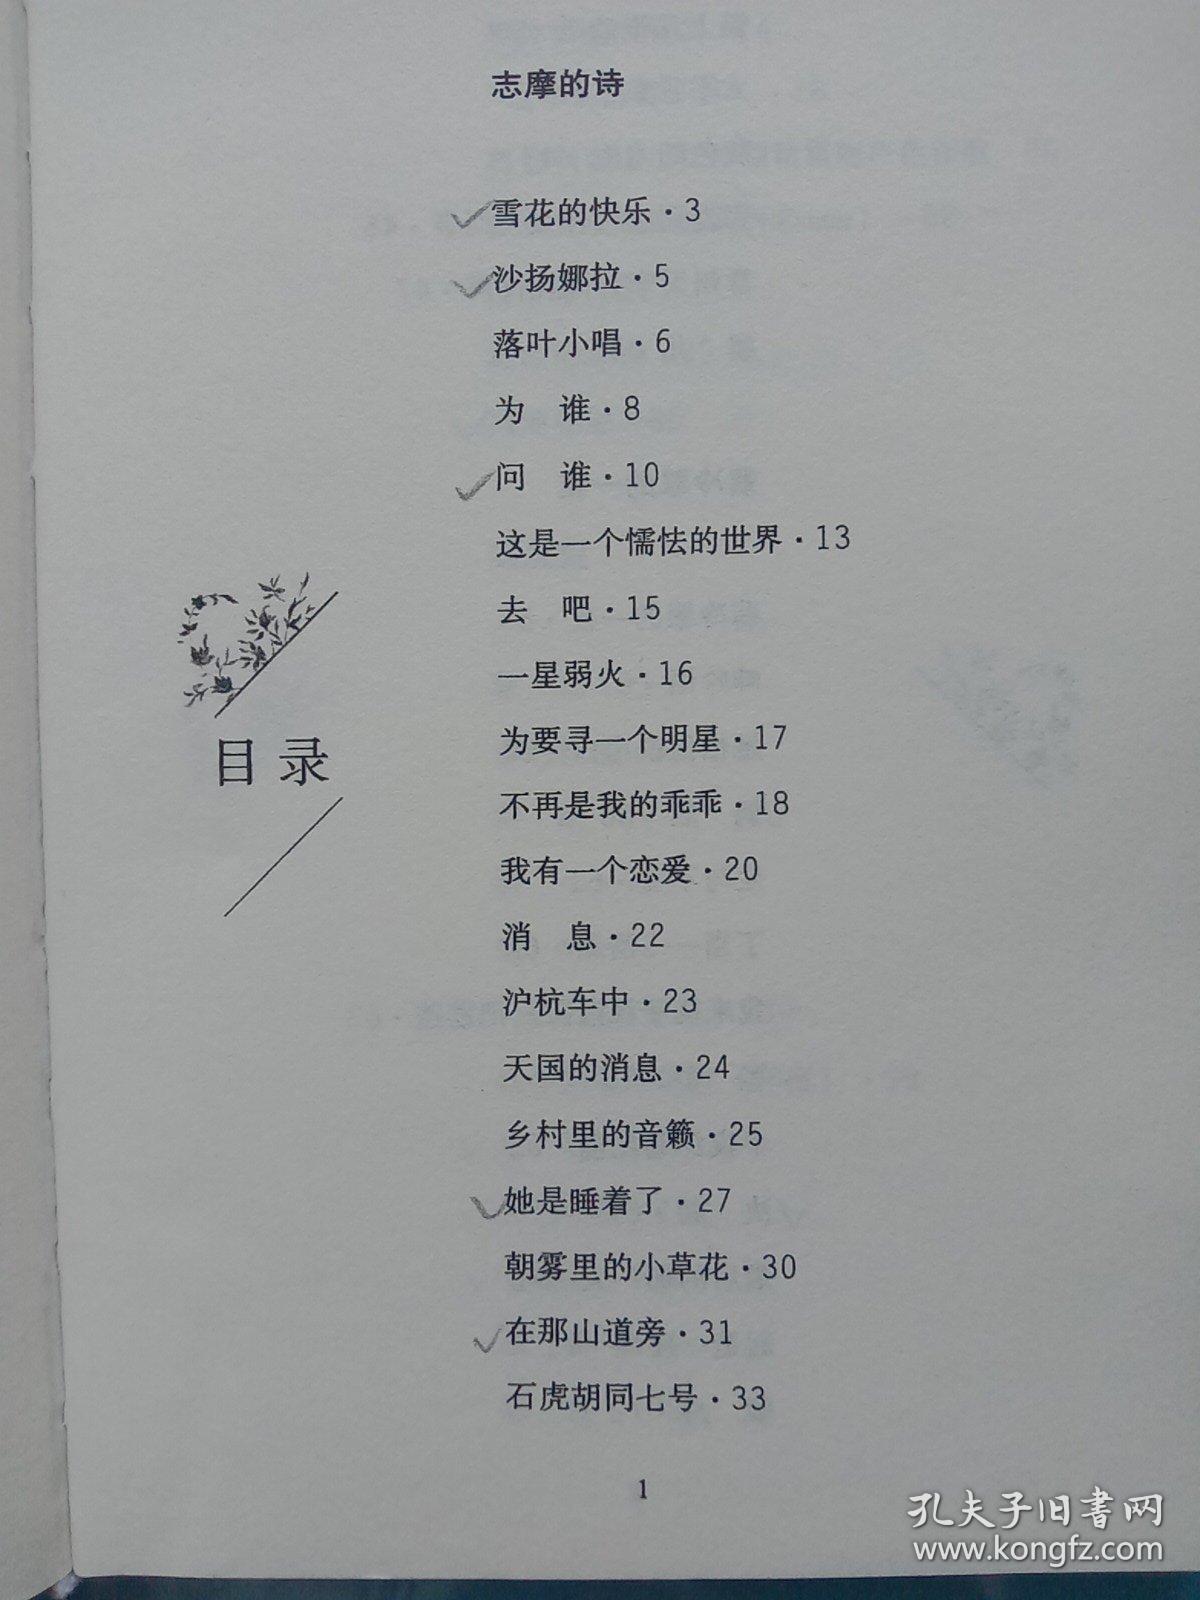 志摩的诗
雪花的快乐·3
沙扬娜拉·5
落叶小唱·6
为 谁·8
问 谁·10
这是一个懦怯的世界·13
去 吧·15
一星弱火·16
为要寻一个明星·17
不再是我的乖乖·18
我有一个恋爱·20
消 息·22
沪杭车中·23
天国的消息·24
乡村里的音籁·25
她是睡着了·27
朝雾里的小草花·30
在那山道旁·31
石虎胡同七号·33
目录
1
孔夫子旧书网
www.kongfz.com